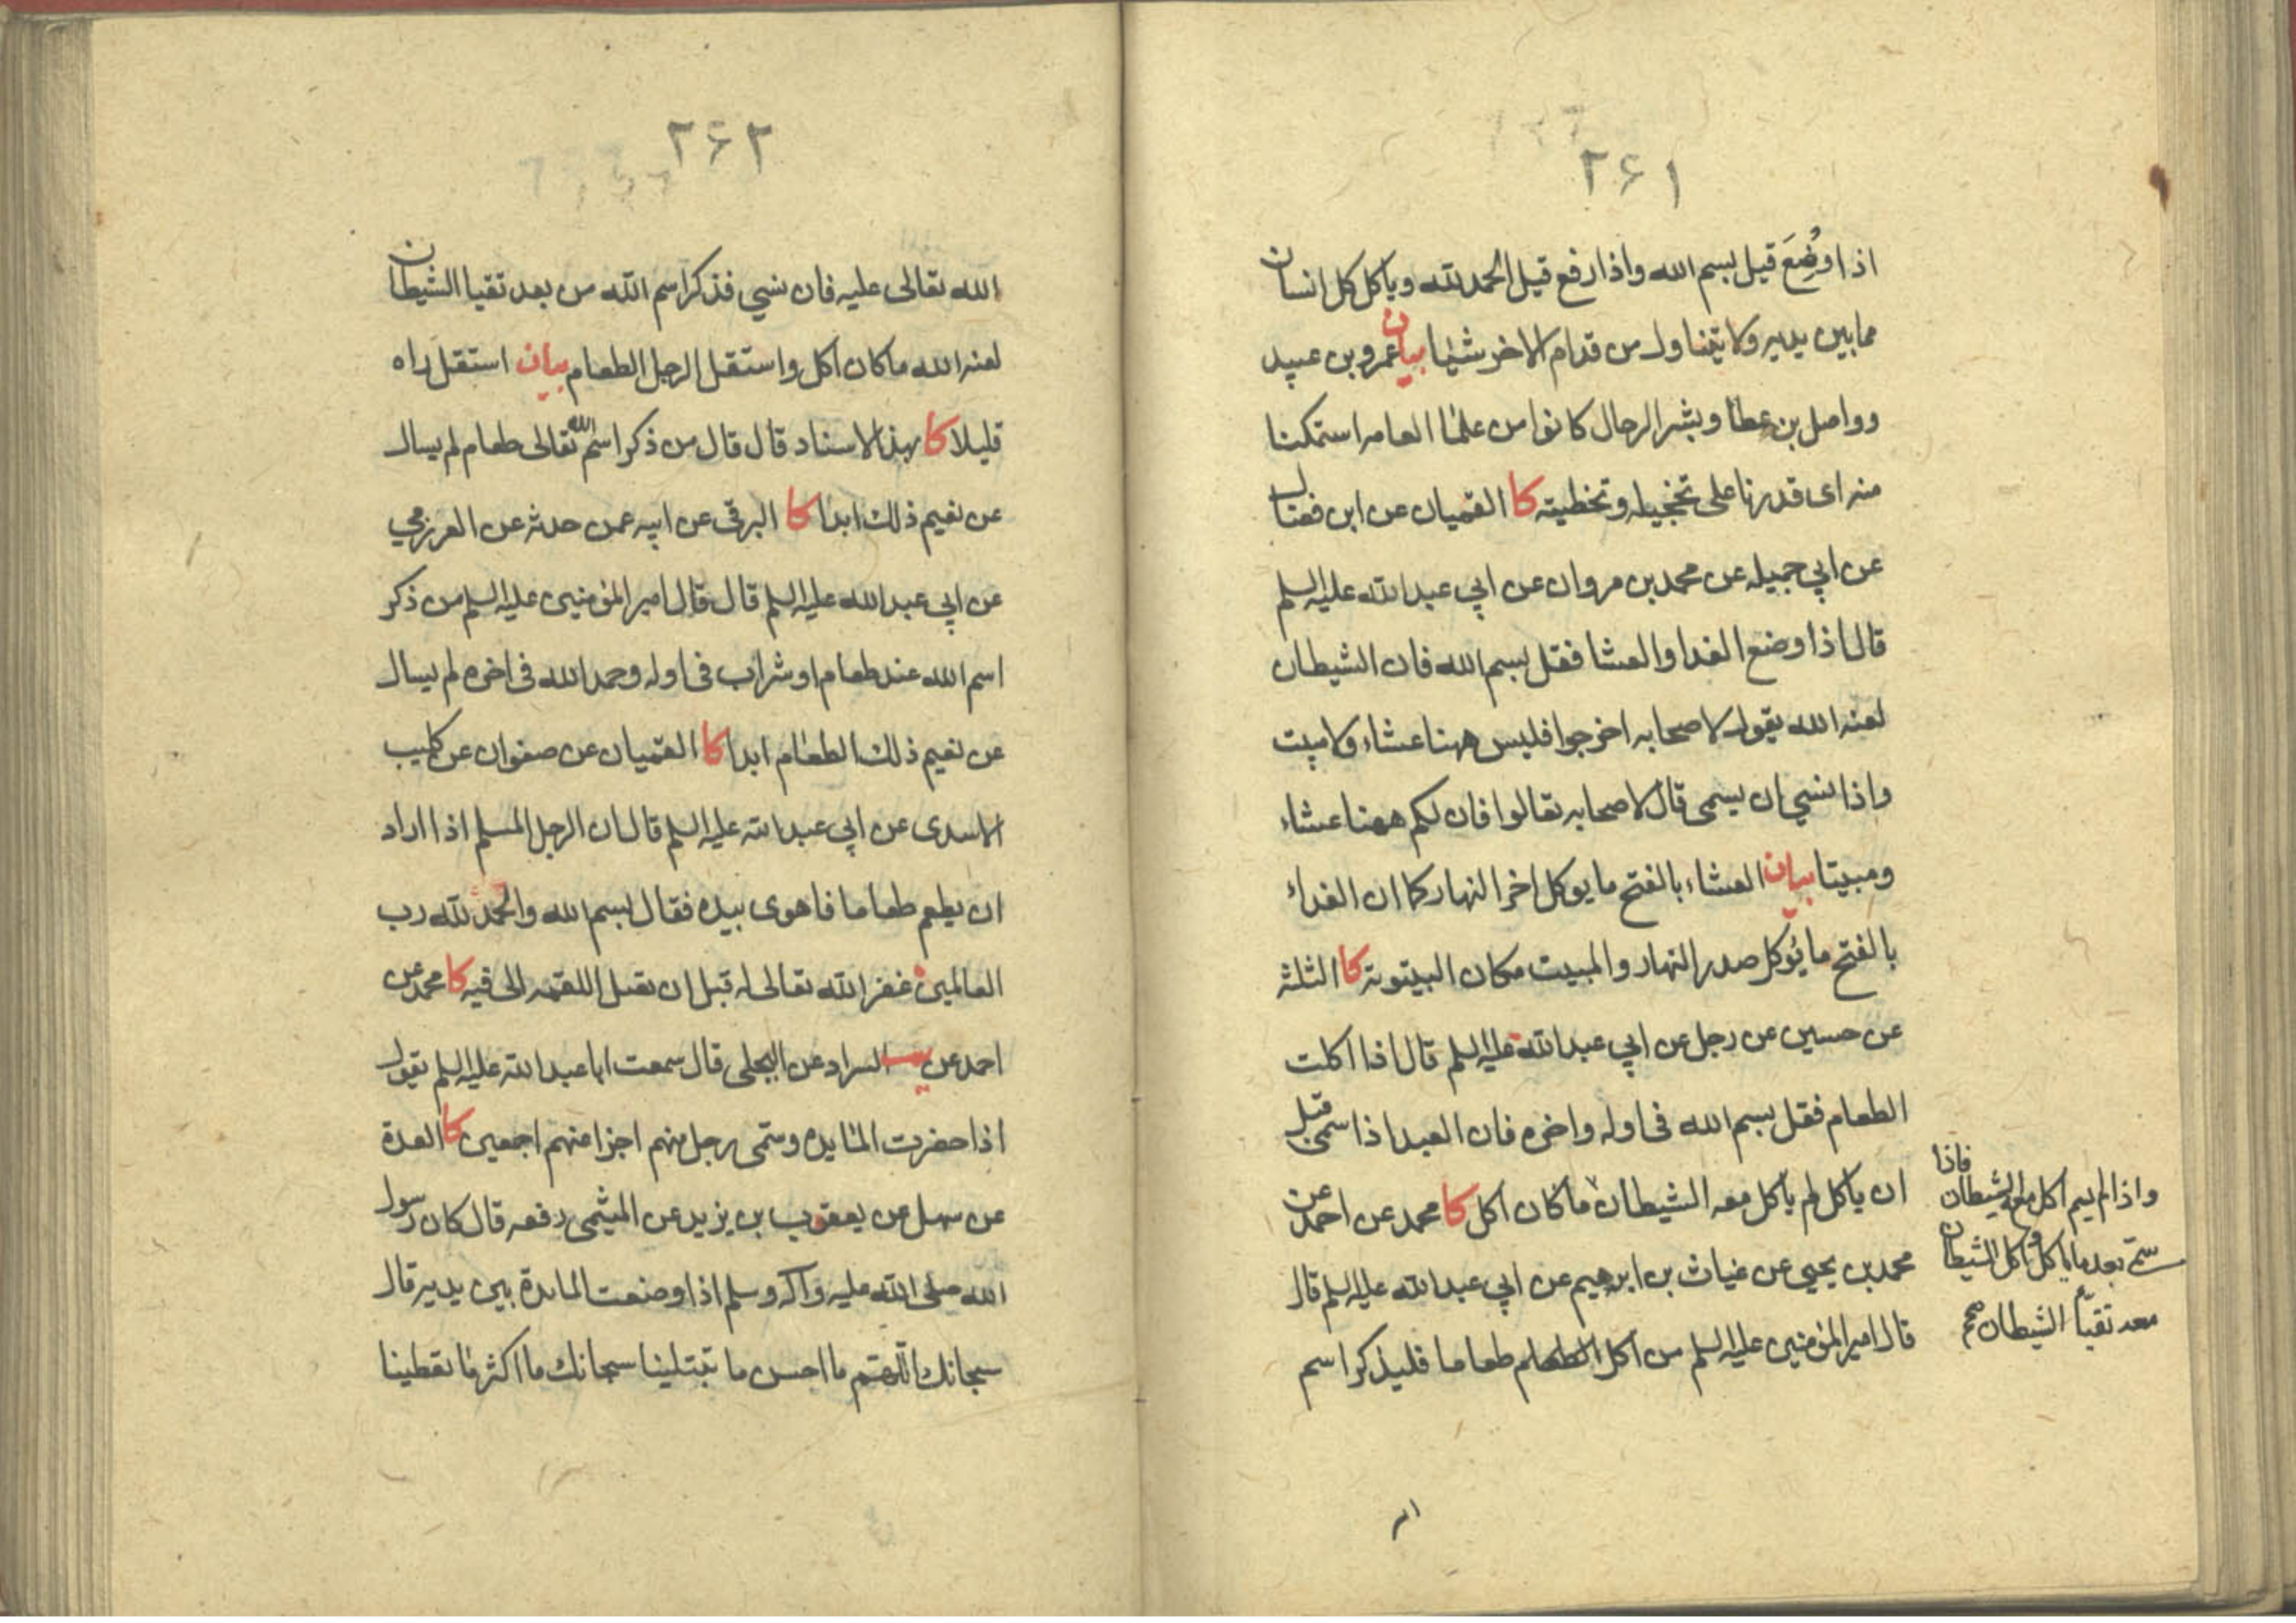 ۲۶۱
اذا وُضِعَ قيل بسم الله واذا رفع قيل الحمد لله وياكل كل انسان
مما بين يديه ولا يتناول من قدام الاخر شيئا بيان عمرو بن عبيد
وواصل بن عطا وبشر الرحال كانوا من علما العامه استمكنا
منه اى قدرنا على تخجيله وتخطيته كا القميان عن ابن فضال
عن ابي جميله عن محمد بن مروان عن ابي عبد الله عليه السلم
قال اذا وضع الغدا والعشا فقل بسم الله فان الشيطان
لعنه الله يقول لاصحابه اخرجوا فليس ههنا عشاء ولا مبيت
واذا نسي ان يسمى قال لاصحابه تعالوا فان لكم ههنا عشاء
ومبيتا بيان العشاء بالفتح ما يوكل اخر النهار كما ان الغداء
بالفتح ما يُوكل صدر النهار والمبيت مكان البيتوتة كا الثلثة
عن حسين عن رجل عن ابي عبد الله عليه السلم قال اذا اكلت
الطعام فقل بسم الله فى اوله واخره فان العبد اذا سمى قبل
ان ياكل لم ياكل معه الشيطان ما كان اكل كا محمد عن احمد عن
محمد بن يحيي عن غياث بن ابرهيم عن ابي عبد الله عليه السلم قال
قال امير المؤمنين عليه السلم من اكل الطعام طعاما فليذكر اسم
فاذا
واذا لم يسم اكل معه الشيطان
سمّى بعد ما ياكل واكل الشيطان
معه تقيّأ الشيطان صح
۲۶۲
الله تعالى عليه فان نسي فذكر اسم الله من بعد تقيا الشيطان
لعنه الله ما كان اكل واستقل الرجل الطعام بيان استقل راه
قليلا كا بهذا الاسناد قال قال من ذكر اسم الله تعالى طعام لم يسال
عن نعيم ذلك ابدا كا البرقى عن ابيه عمن حدثه عن العرزمي
عن ابي عبد الله عليه السلم قال قال امير المؤمنين عليه السلم من ذكر
اسم الله عند طعام او شراب فى اوله وحمد الله فى اخره لم يسال
عن نعيم ذلك الطعام ابدا كا القميان عن صفوان عن كليب
الاسدى عن ابي عبد الله عليه السلم قال ان الرجل المسلم اذا اراد
ان يطعم طعاما فاهوى بيده فقال بسم الله والحمد لله رب
العالمين غفر الله تعالى له قبل ان تصل اللقمه الى فيه كا محمد عن
احمد عن السراد عن البجلى قال سمعت ابا عبد الله عليه السلم يقول
اذا حضرت المايده وسمّى رجل منهم اجزا عنهم اجمعين كا العدة
عن سهل عن يعقوب بن يزيد عن الميثمى رفعه قال كان رسول
الله صلى الله عليه وآله وسلم اذا وضعت المايدة بين يديه قال
سبحانك اللهم ما احسن ما تبتلينا سبحانك ما اكثر ما تعطينا